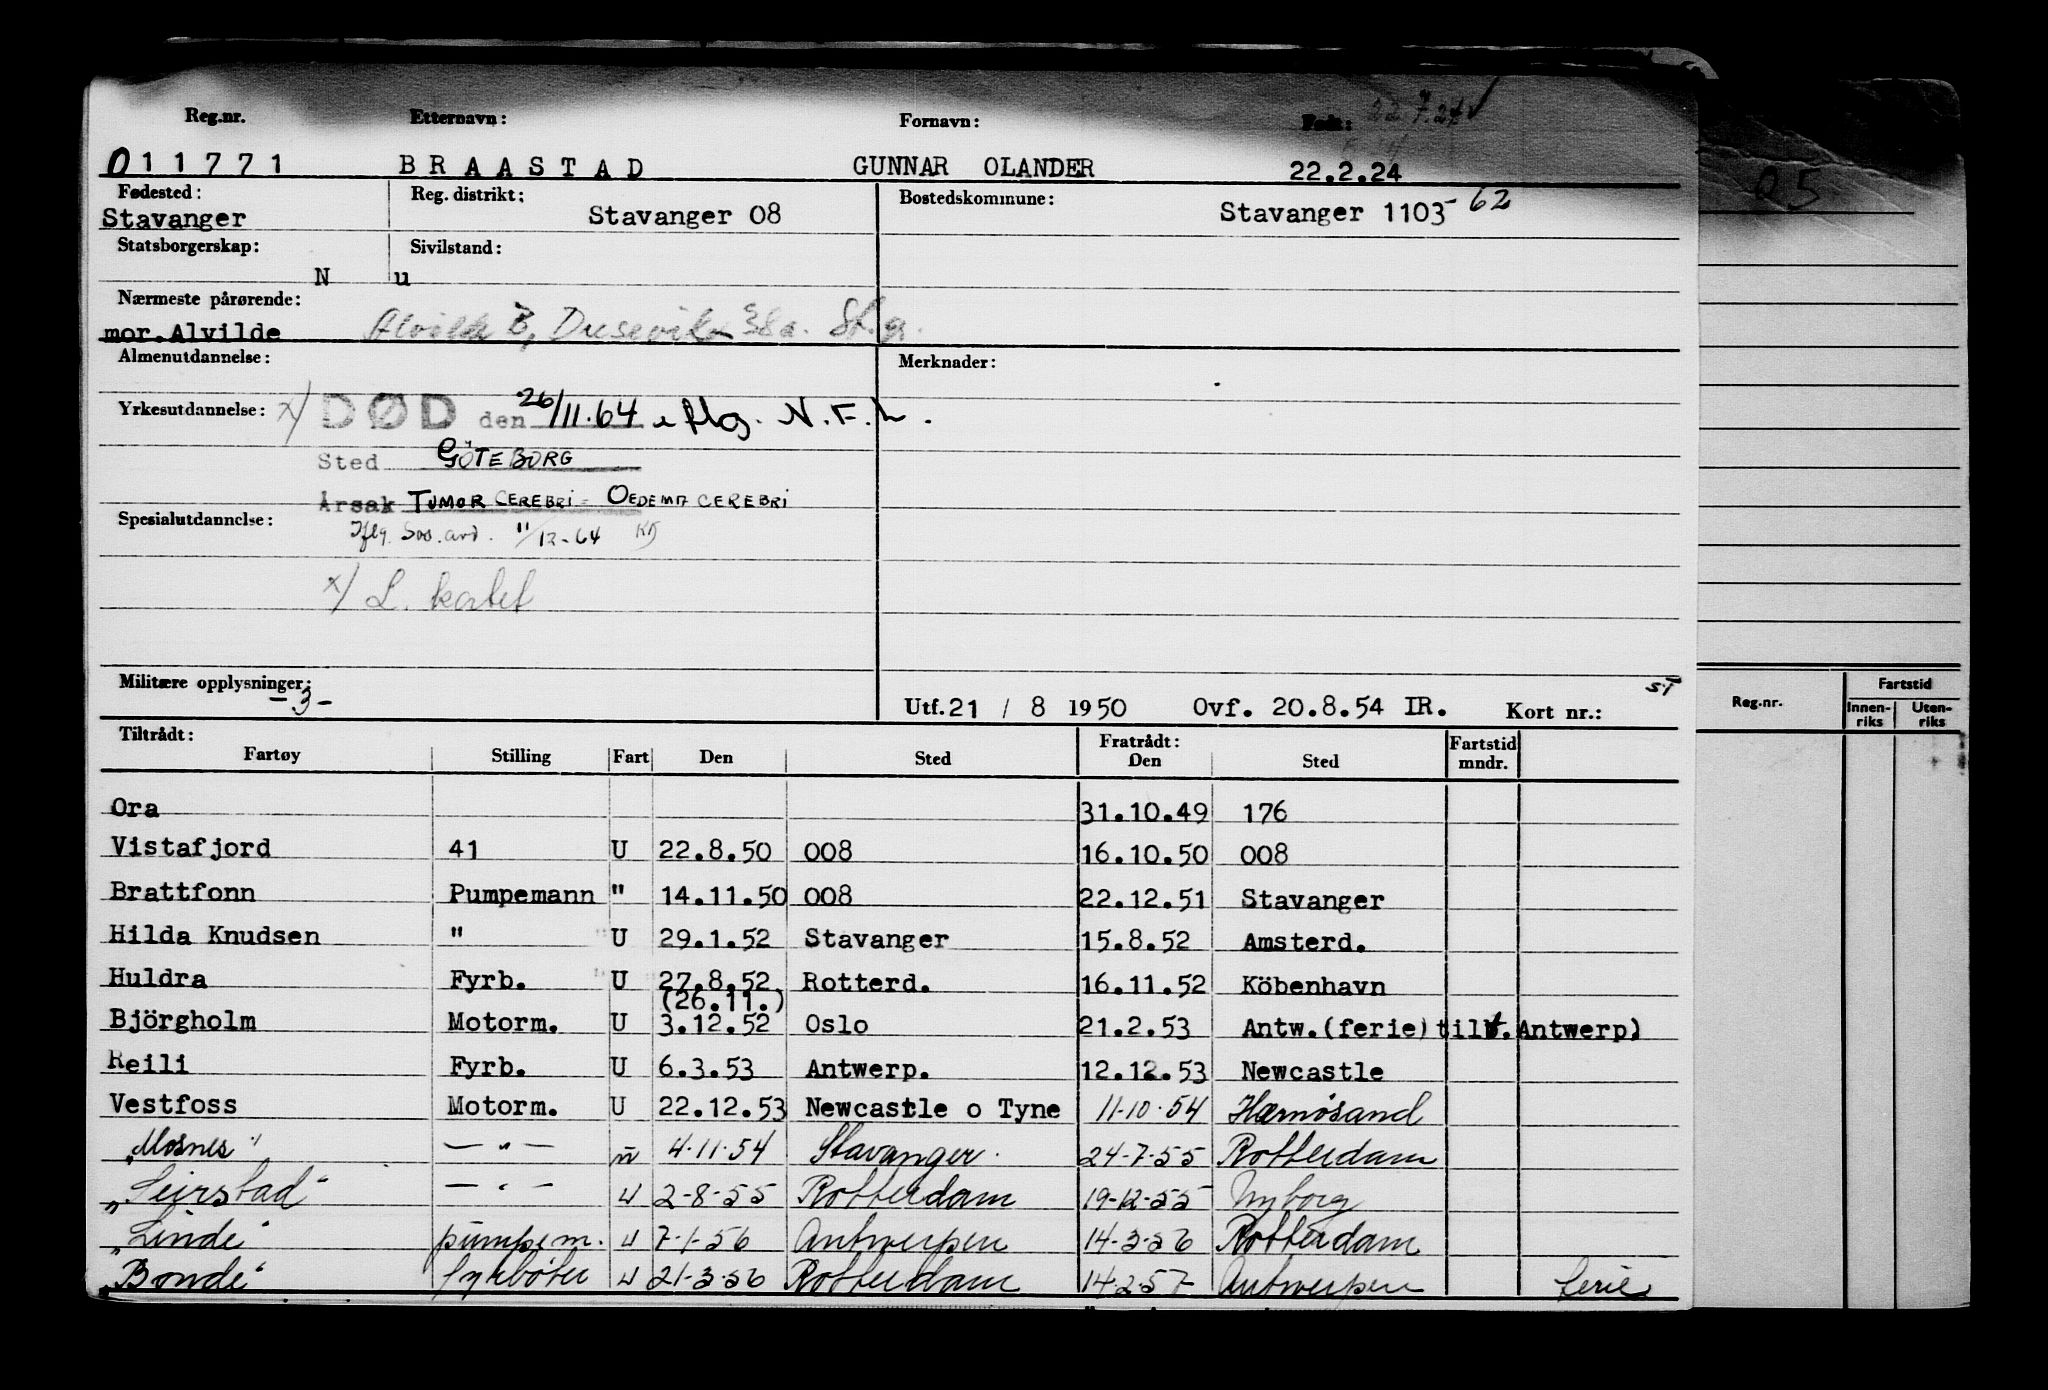 Reg.nr. Etternavn: Fornavn: Født: 22 7.24
011771 BRAASTAD GUNNAR OLANDER 22.2.24
Fødested: Reg. distrikt: Bostedskommune:
Stavanger Stavanger 08 Stavanger 1103 - 62
Statsborgerskap: Sivilstand:
N u
Nærmeste pårørende:
mor.Alvilde Alvilde B, Dusevikv 38a. St.g.
Almenutdannelse: Merknader:
Yrkesutdannelse: x/ DØD den 26/11.64 iflg. N.F.L.
Sted GÖTEBORG
Årsak TUMOR CEREBRI - OEDEMA CEREBRI
Spesialutdannelse:
Iflg. Sos. avd. 11/12-64
x/ L. kortet
Militære opplysninger: -3-
Utf. 21 / 8 1950 Ovf. 20.8.54 IR. Kort nr.: ST
Tiltrådt: Fratrådt: Fartstid
Fartøy Stilling Fart Den Sted Den Sted mndr.
Ora 31.10.49 176
Vistafjord 41 U 22.8.50 008 16.10.50 008
Brattfonn Pumpemann " 14.11.50 008 22.12.51 Stavanger
Hilda Knudsen " U 29.1.52 Stavanger 15.8.52 Amsterd.
Huldra Fyrb. U 27.8.52 Rotterd. 16.11.52 Köbenhavn
(26.11.)
Björgholm Motorm. U 3.12.52 Oslo 21.2.53 Antw.(ferie)tilt.Antwerp)
Reili Fyrb. U 6.3.53 Antwerp. 12.12.53 Newcastle
Vestfoss Motorm. U 22.12.53 Newcastle o Tyne 11-10-54 Hærnösand
„Mosnes" — " — u 4.11.54 Stavanger. 24-7-55 Rotterdam
„Seirstad" — " — u 2-8-55 Rotterdam 19-12-55 Nyborg
„Linde" pumpem. u 7-1-56 Antwerpen 14-3-56 Rotterdam
„Bonde" fyrbøter u 21-3-56 Rotterdam 14-2-57 Antwerpen ferie
05
Reg.nr. Fartstid
Innen-riks Uten-riks